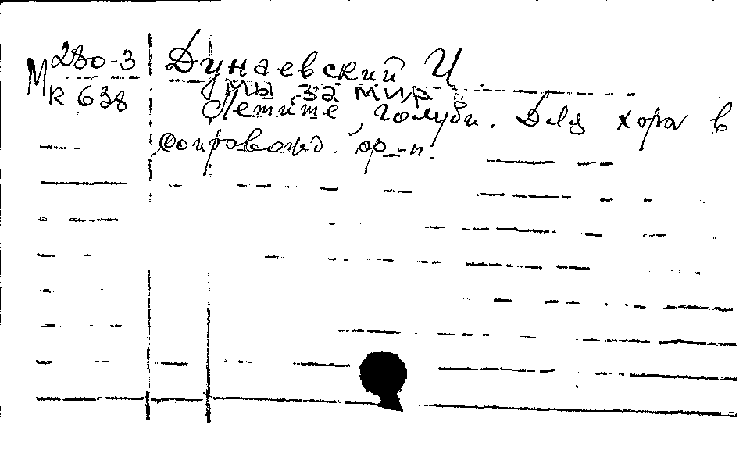 М 280-3
К 638
Дунаевский И.
Мы за мир
Летите, голуби. Для хора в
сопровожд. ор-п.